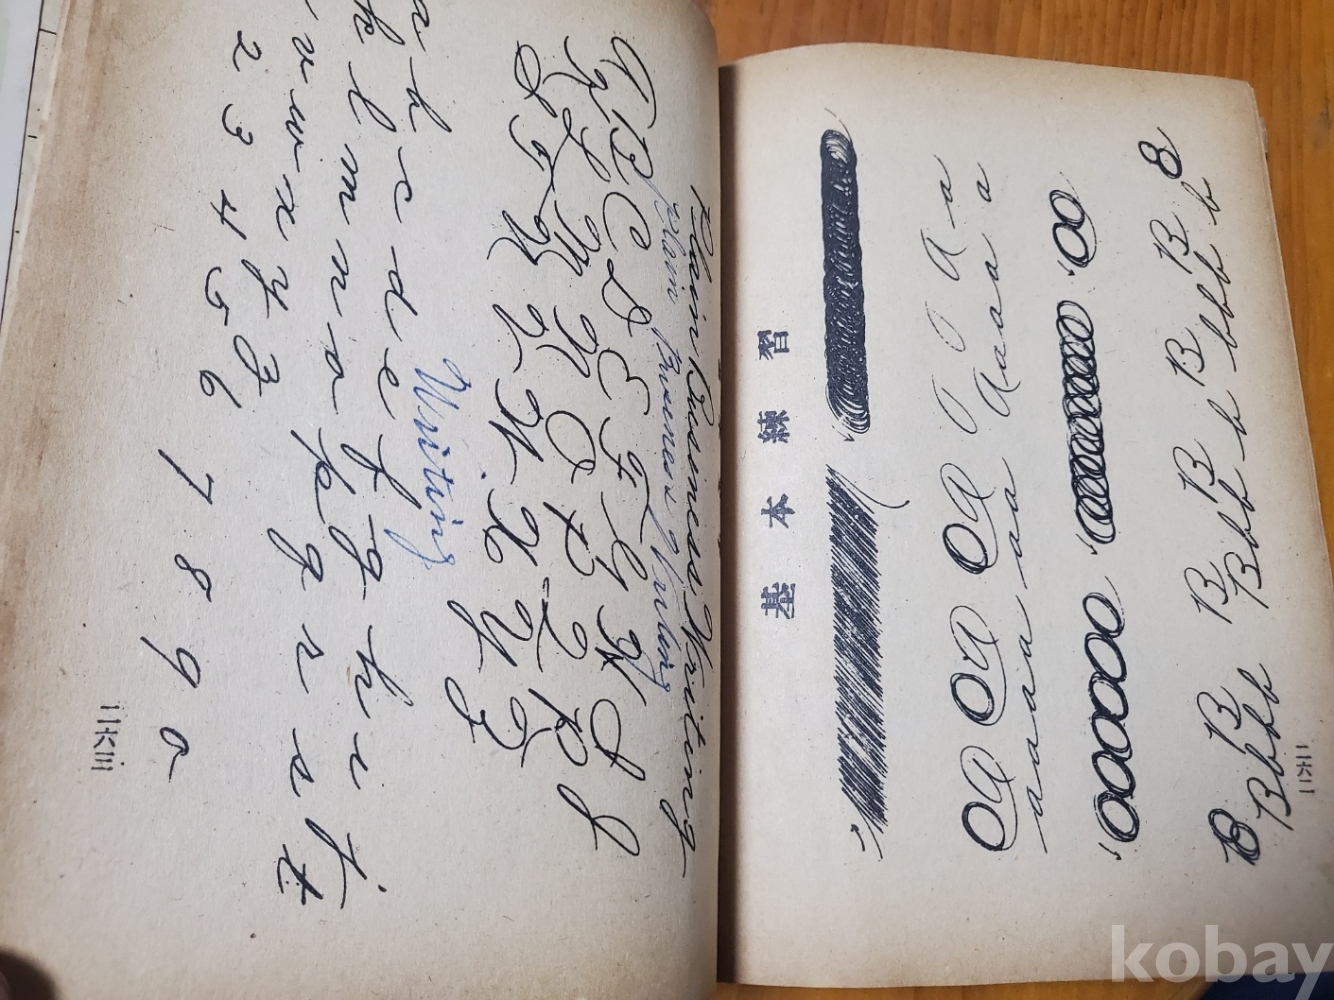 Plain Business Writing
plain Business Writing
A B C D E F G H I J
K L M N O P Q R S
T U V W X Y Z
Writing
a b c d e f g h i j
k l m n o p q r s t
v w x y z
2 3 4 5 6 7 8 9 0
二六三
基本練習
B B B B B B B B
Bbbb Bbb b B bbb b
二六二
kobay